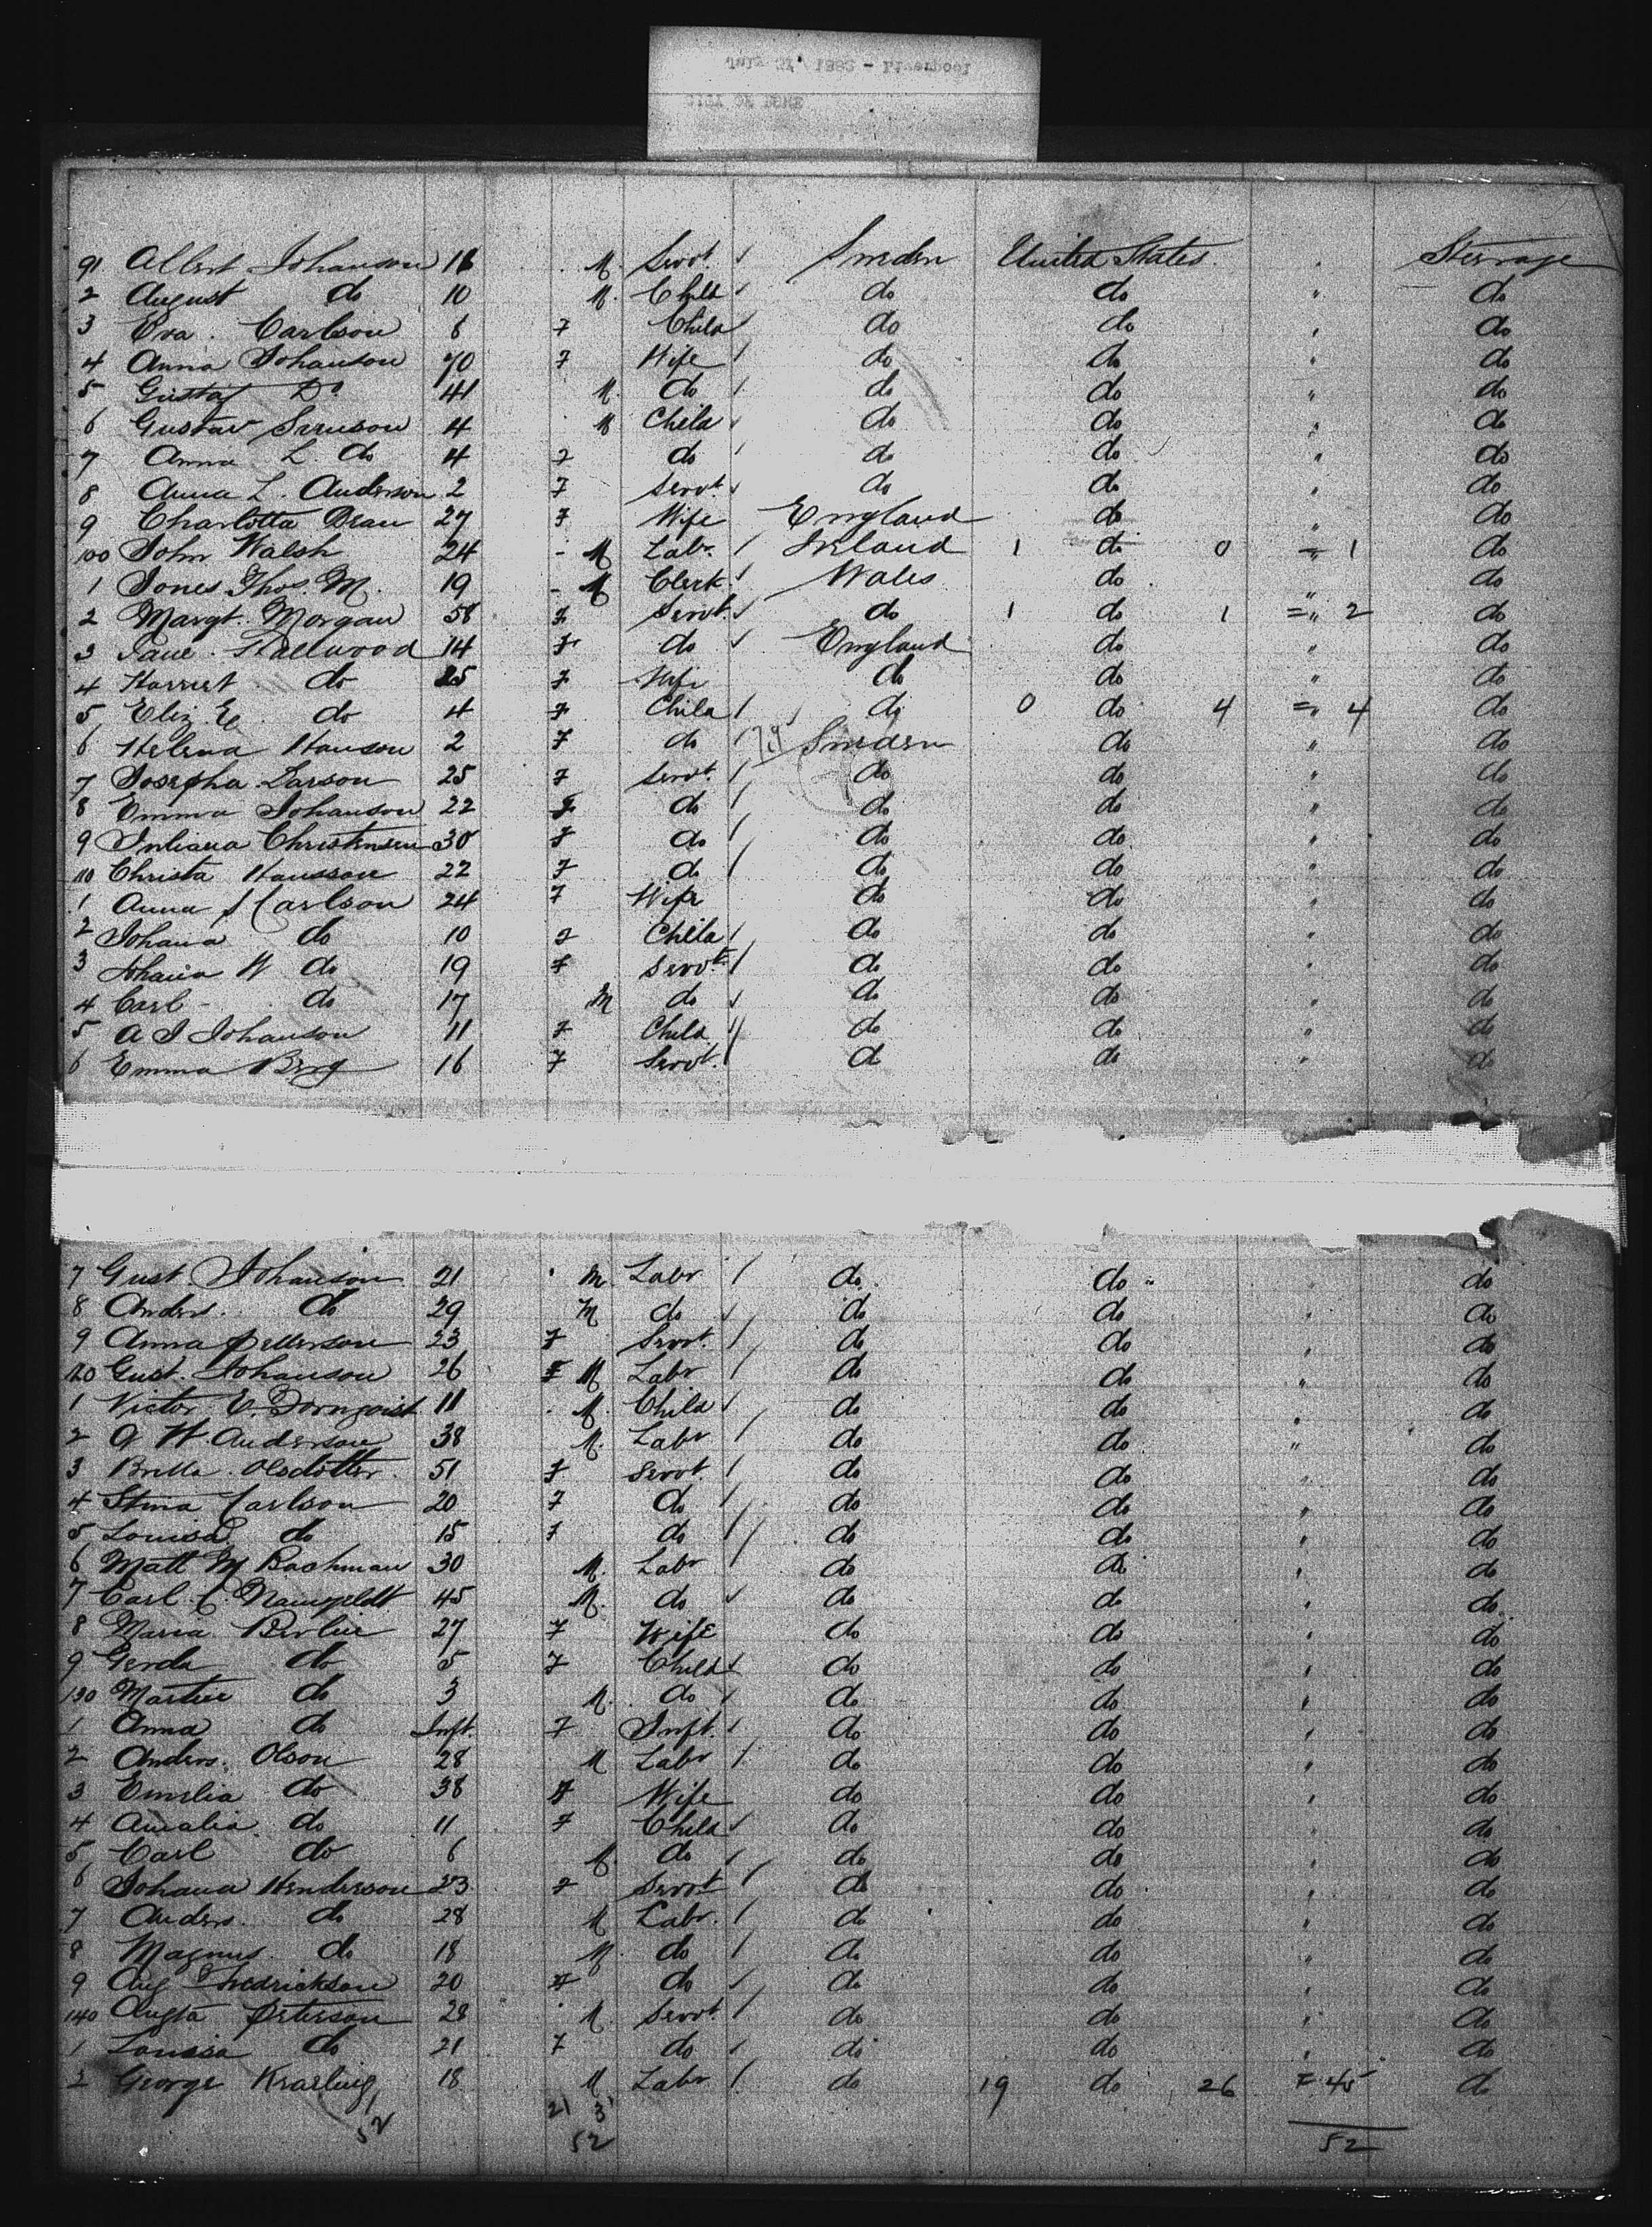 91 Albert Johanson 18 M. Servt. Sweden United States " Steerage
2 August do 10 M. Child do do " do
3 Eva. Carlson 6 F Child do do " do
4 Anna Johanson 70 F Wife do do " do
5 Gustaf Do 41 M. do do do " do
6 Gustav 4 M Child do do " do
7 Anna L do 4 F do do do " do
8 Anna L. Anderson 2 F Servt. do do " do
9 Charlotta Dean 27 F Wife England do " do
100 John Walsh 24 - M Labr. Ireland 1 do 0 = " 1 do
1 Jones Thos. M. 19 - M Clerk Wales do " do
2 Margt. Morgan 58 F Servt. do 1 do 1 = " 2 do
3 Jane 14 F do England do " do
4 Harriet do 25 F Wife do do " do
5 Eliz. E. do 4 F Child do 0 do 4 = " 4 do
6 Helena Hanson 2 F do Sweden do " do
7 Josepha Larson 25 F Servt. do do " do
8 Emma Johanson 22 F do do do " do
9 Juliana Christensen 30 F do do do " do
110 Christa Hansson 22 F do do do " do
1 Anna Carlson 24 F Wife do do " do
2 Johana do 10 F Child do do " do
3 Johana W do 19 F Servt. do do " do
4 Carl - do 17 M do do do " do
5 A J Johanson 11 F Child do do " do
6 Emma Berg 16 F Servt. d do " do
7 Gust Johanson 21 M Labr do do " do
8 Anders. do 29 M do do do " do
9 Anna Petterson 23 F Servt. do do " do
120 Gust. Johanson 26 F M Labr do do " do
1 Victor E. 11 M. Child do do " do
2 A W. Anderson 38 M. Labr do do " do
3 Britta. Olsdotter. 51 F Servt. do do " do
4 Stina Carlson 20 F do do do " do
5 Louisa do 15 F do do do " do
6 Matt M Bachman 30 M. Labr do do " do
7 Carl. C. 45 M. do do do " do
8 Maria Berlin 27 F Wife do do " do
9 Gerda do 5 F Child do do " do
130 Martin do 3 M. do do do " do
1 Anna do Inft. F Inft. do do " do
2 Anders. Olson 28 M Labr do do " do
3 Emelia do 38 F Wife do do " do
4 Amalia do 11 F Child do do " do
5 Carl do 6 M. do do do " do
6 Johana Henderson 23 F Servt do do " do
7 Anders. do 28 M Labr. do do " do
8 Magnus. do 18 M. do do do " do
9 Aug Fredrickson 20 F do do do " do
140 Augta Peterson 28 M Servt. do do " do
1 Louisa do 21 F do do do " do
2 George 18 M Labr do 19 do 26 = 45 do
52 21 31
52 52